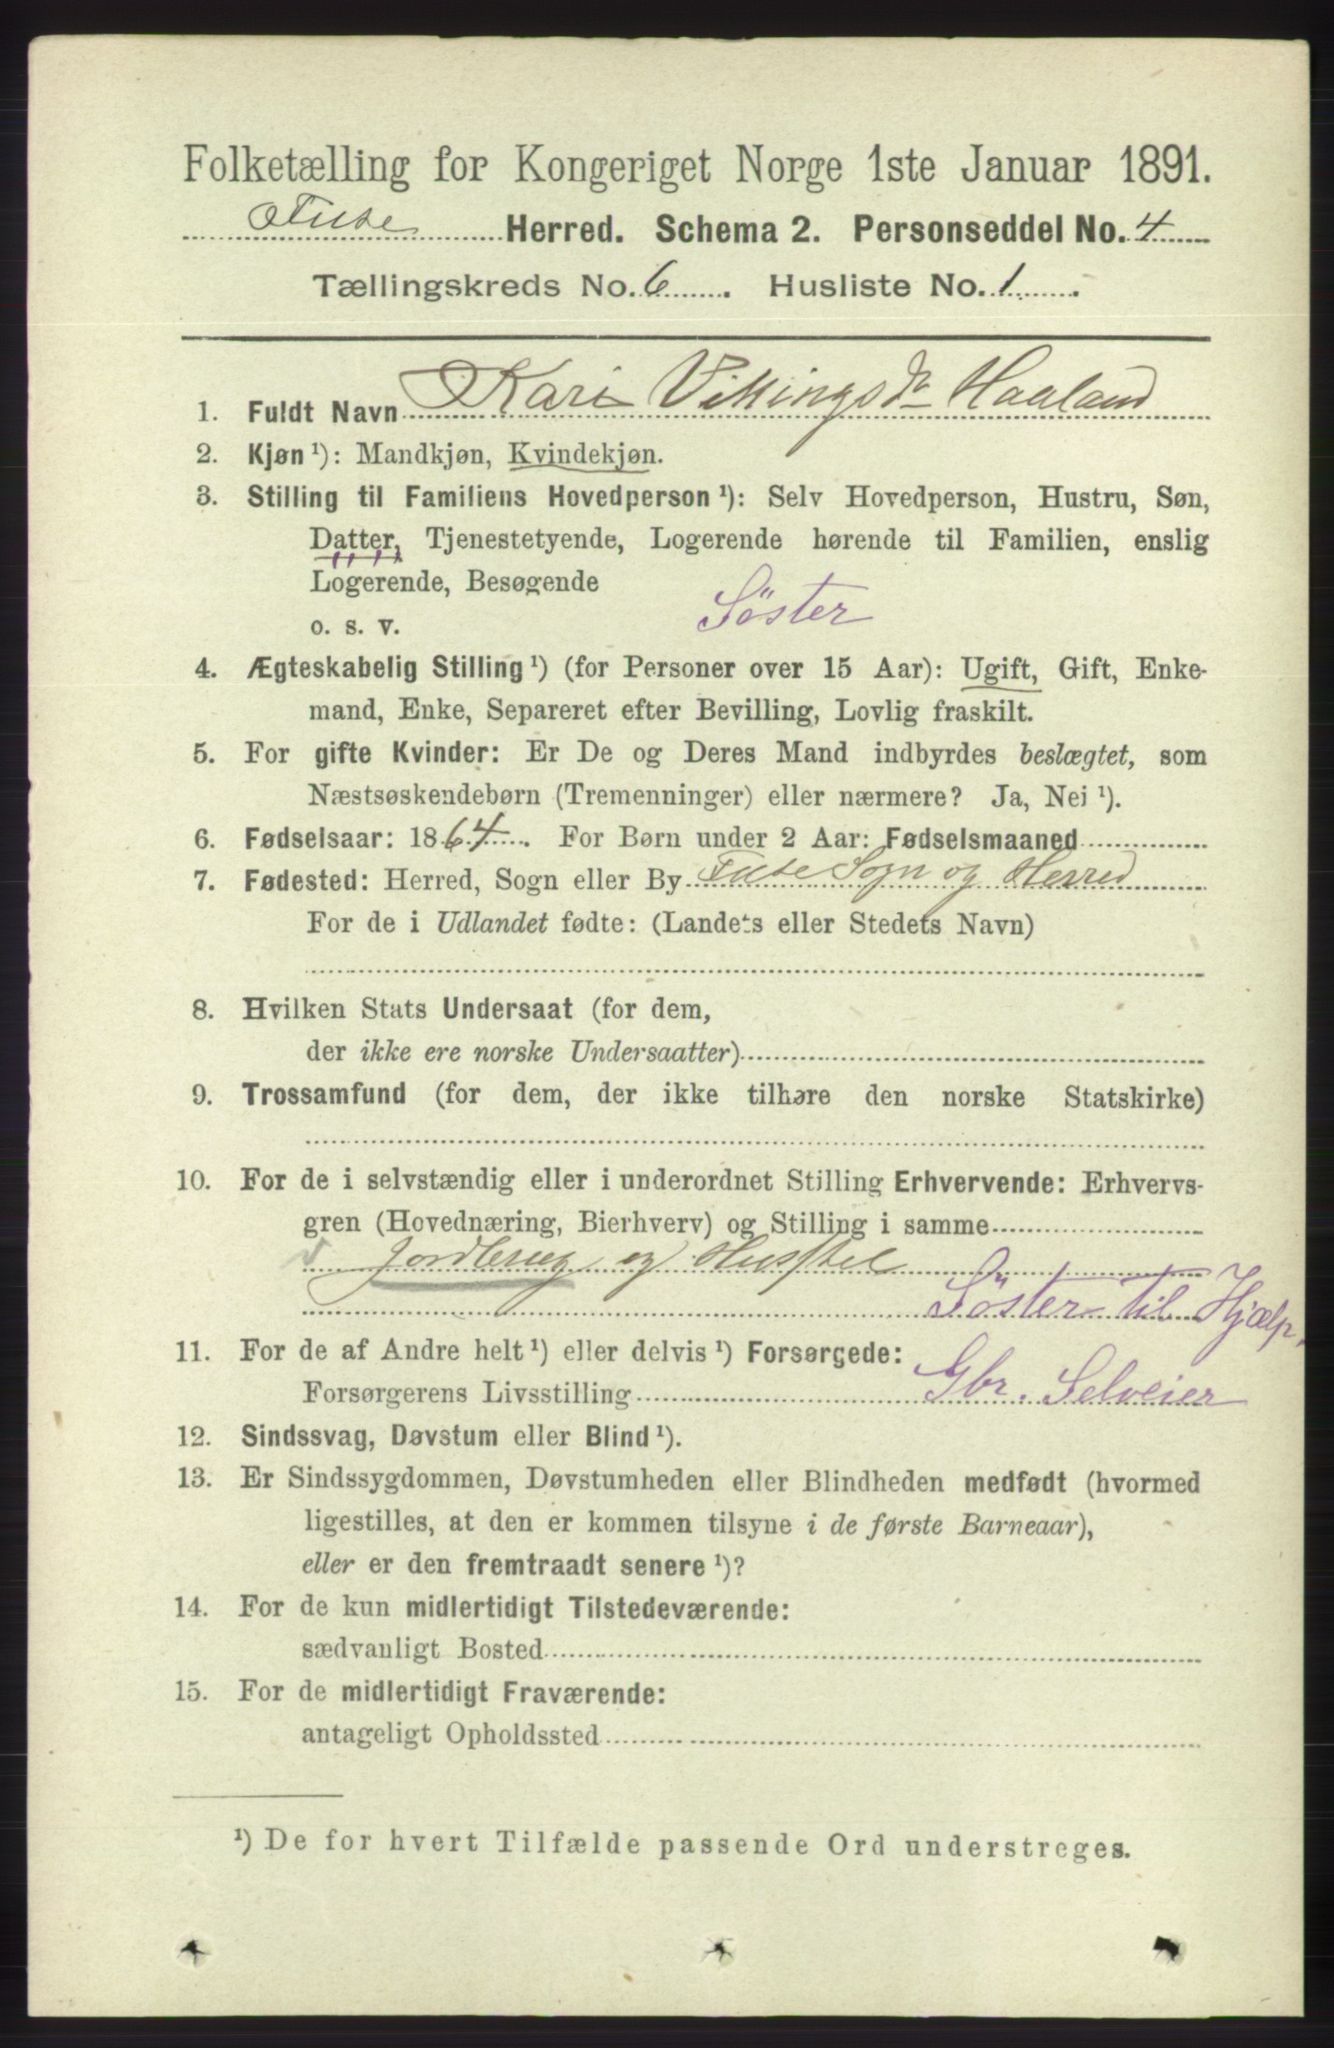 Folketælling for Kongeriget Norge 1ste Januar 1891.
Fuse Herred. Schema 2. Personseddel No. 4
Tællingskreds No. 6. Husliste No. 1.
1. Fuldt Navn Kari Vikingsdr Haaland
2. Kjøn ¹): Mandkjøn, Kvindekjøn.
3. Stilling til Familiens Hovedperson ¹): Selv Hovedperson, Hustru, Søn,
Datter, Tjenestetyende, Logerende hørende til Familien, enslig
Logerende, Besøgende
o. s. v. Söster
4. Ægteskabelig Stilling ¹) (for Personer over 15 Aar): Ugift, Gift, Enke-
mand, Enke, Separeret efter Bevilling, Lovlig fraskilt.
5. For gifte Kvinder: Er De og Deres Mand indbyrdes beslægtet, som
Næstsøskendebørn (Tremenninger) eller nærmere? Ja, Nei ¹).
6. Fødselsaar: 1864. For Børn under 2 Aar: Fødselsmaaned
7. Fødested: Herred, Sogn eller By Fuse Sogn og Herred
For de i Udlandet fødte: (Landets eller Stedets Navn)
8. Hvilken Stats Undersaat (for dem,
der ikke ere norske Undersaatter)
9. Trossamfund (for dem, der ikke tilhøre den norske Statskirke)
10. For de i selvstændig eller i underordnet Stilling Erhvervende: Erhvervs-
gren (Hovednæring, Bierhverv) og Stilling i samme
Jordbrug og Husstel
Söster til Hjælp.
11. For de af Andre helt ¹) eller delvis ¹) Forsørgede:
Forsørgerens Livsstilling Gbr. Selveier
12. Sindssvag, Døvstum eller Blind ¹).
13. Er Sindssygdommen, Døvstumheden eller Blindheden medfødt (hvormed
ligestilles, at den er kommen tilsyne i de første Barneaar),
eller er den fremtraadt senere ¹)?
14. For de kun midlertidigt Tilstedeværende:
sædvanligt Bosted
15. For de midlertidigt Fraværende:
antageligt Opholdssted
¹) De for hvert Tilfælde passende Ord understreges.